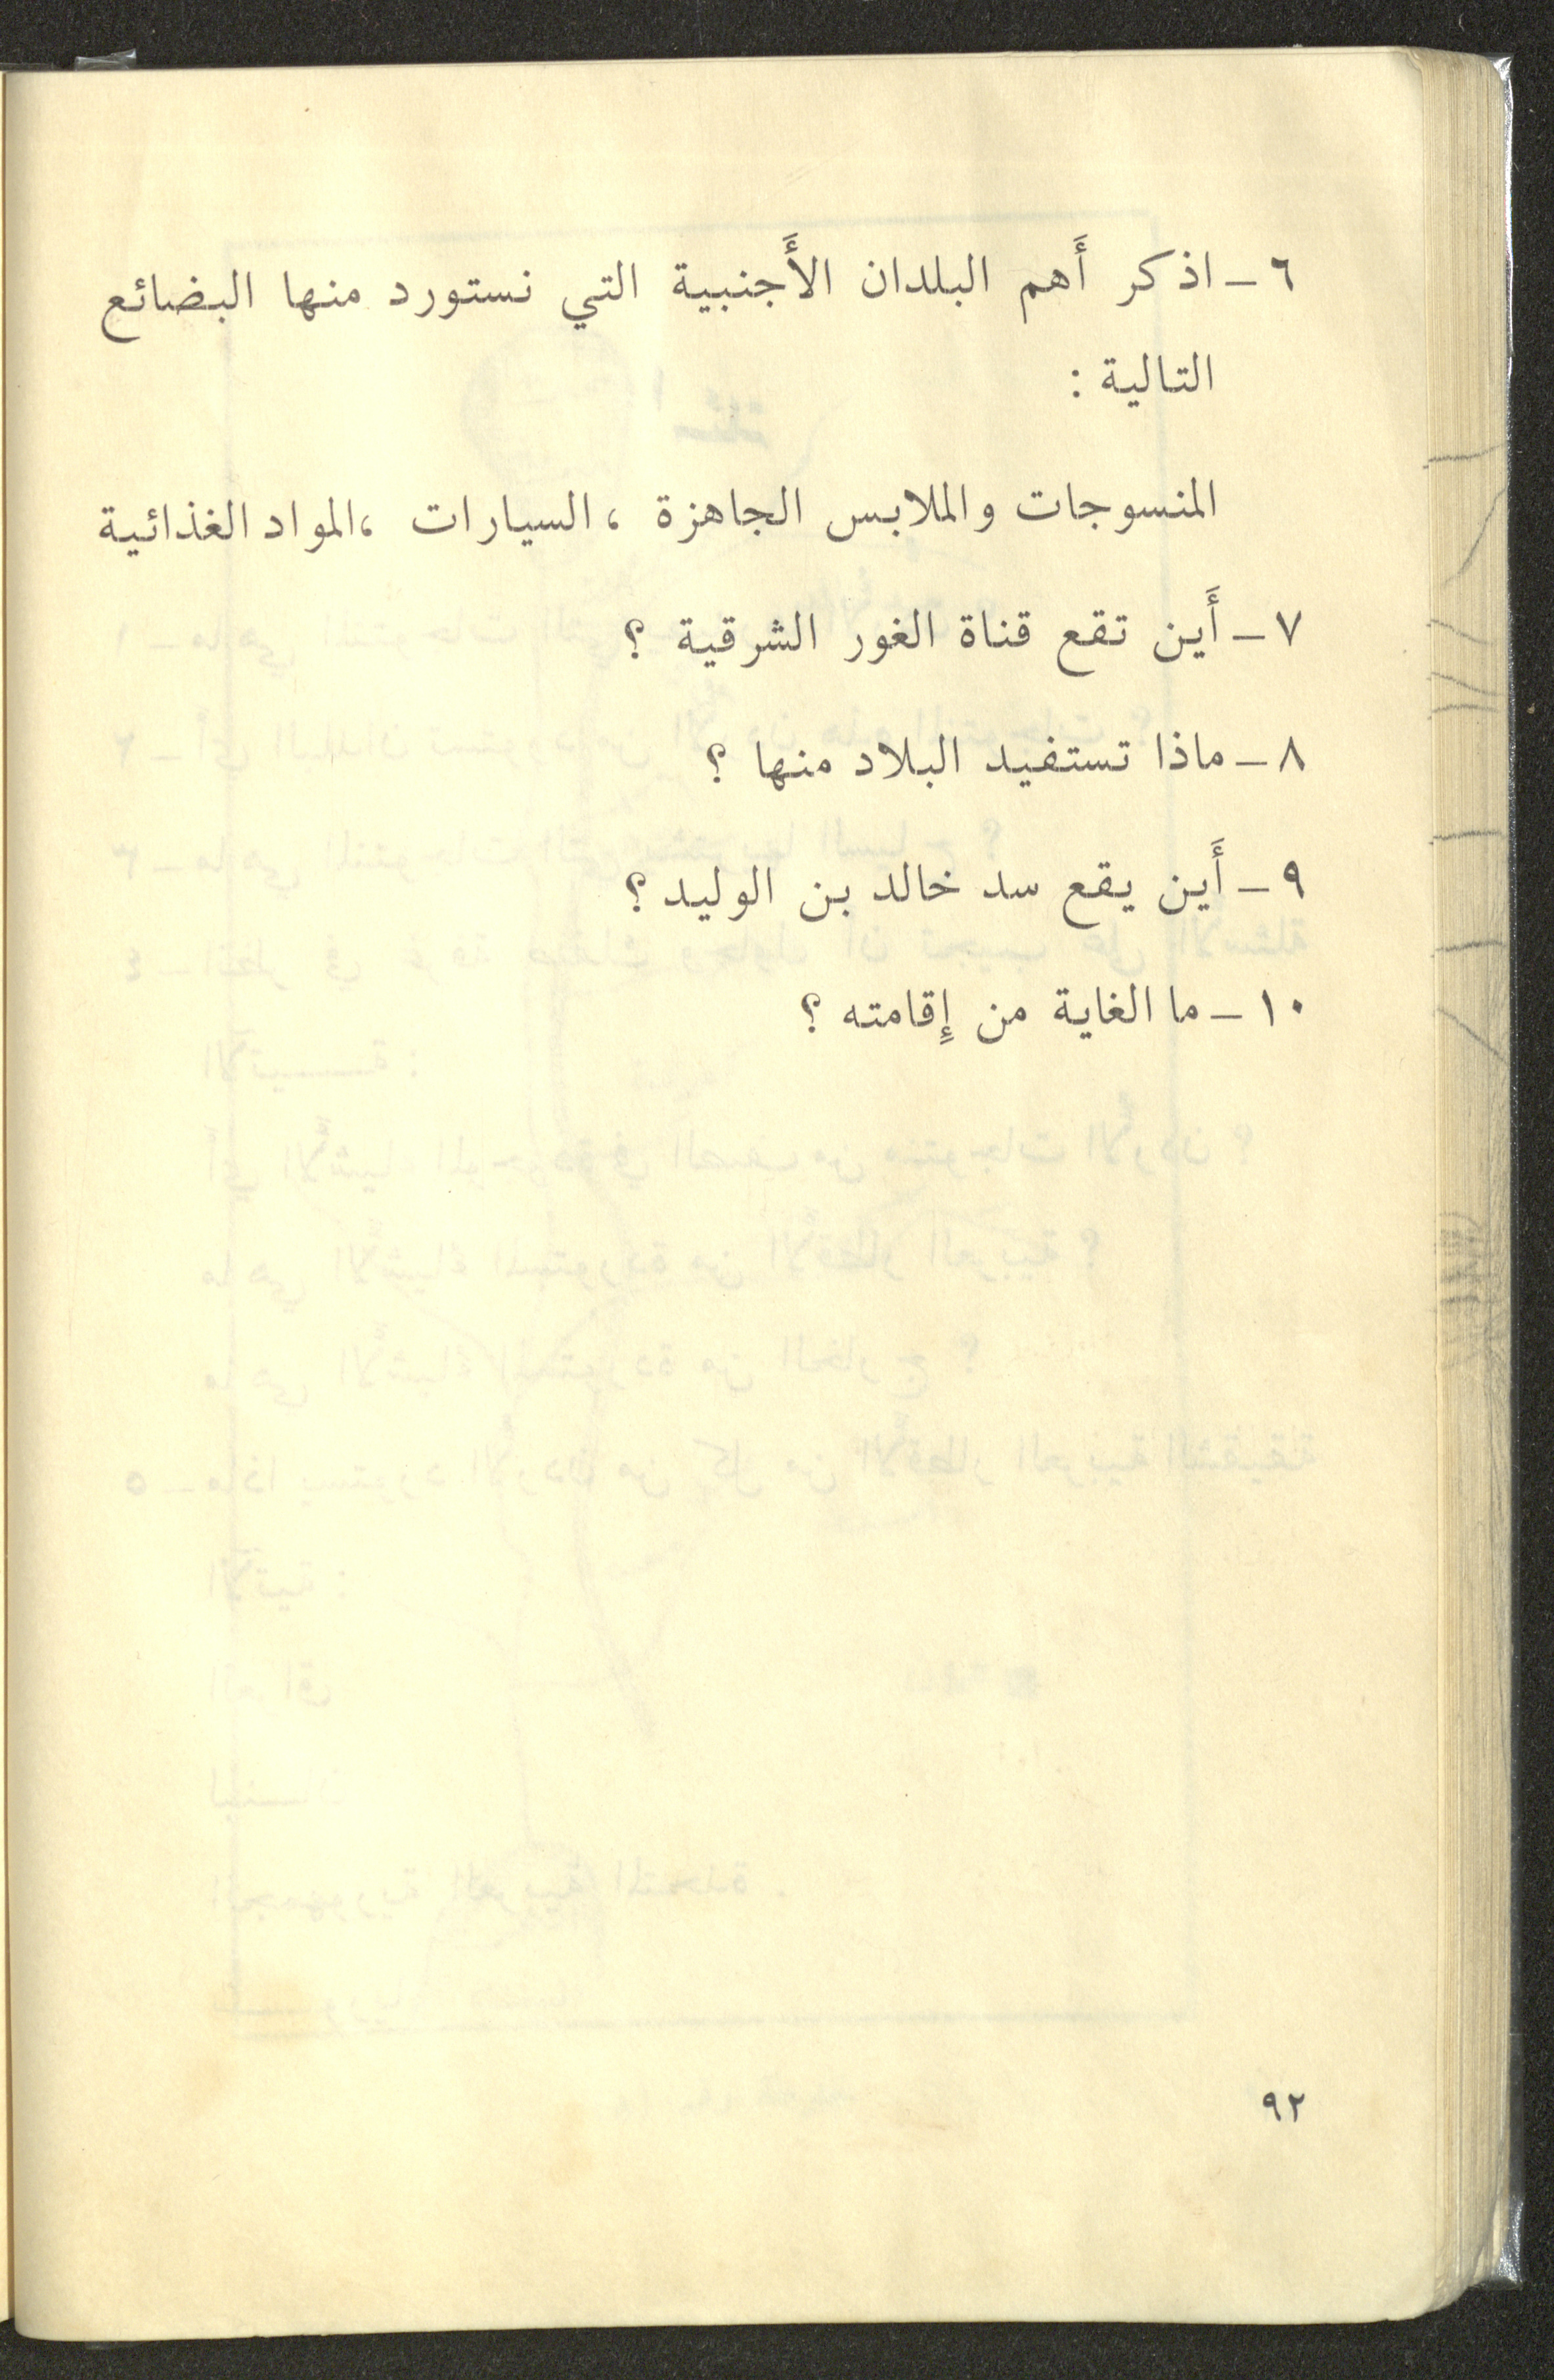 ٦ - اذكر أَهم البلدان الأَجنبية التي نستورد منها البضائع
التالية :
المنسوجات والملابس الجاهزة ، السيارات ، المواد الغذائية
٧ - أَين تقع قناة الغور الشرقية ؟
٨ - ماذا تستفيد البلاد منها ؟
٩ - أَين يقع سد خالد بن الوليد ؟
١٠ - ما الغاية من إِقامته ؟
٩٢